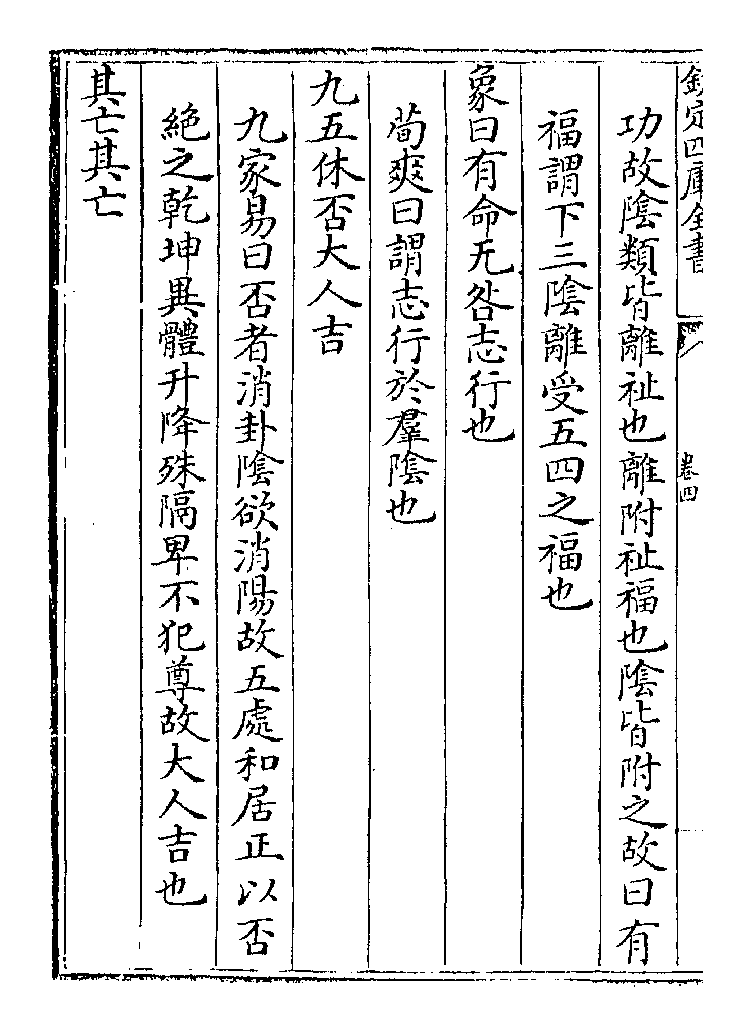 欽定四庫全書
卷四
功故陰類皆離祉也離附祉福也陰皆附之故曰有
福謂下三陰離受五四之福也
象曰有命无咎志行也
荀爽曰謂志行於羣陰也
九五休否大人吉
九家易曰否者消卦陰欲消陽故五處和居正以否
絶之乾坤異體升降殊隔卑不犯尊故大人吉也
其亡其亡